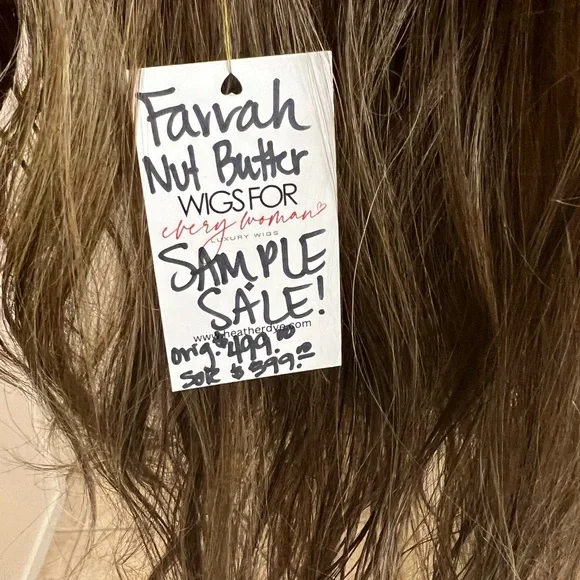 Farrah
Nut Butter
WIGS FOR
every woman
LUXURY WIGS
SAMPLE
SALE!
www.heatherdye.com
orig. $499.00
Sale $399.00